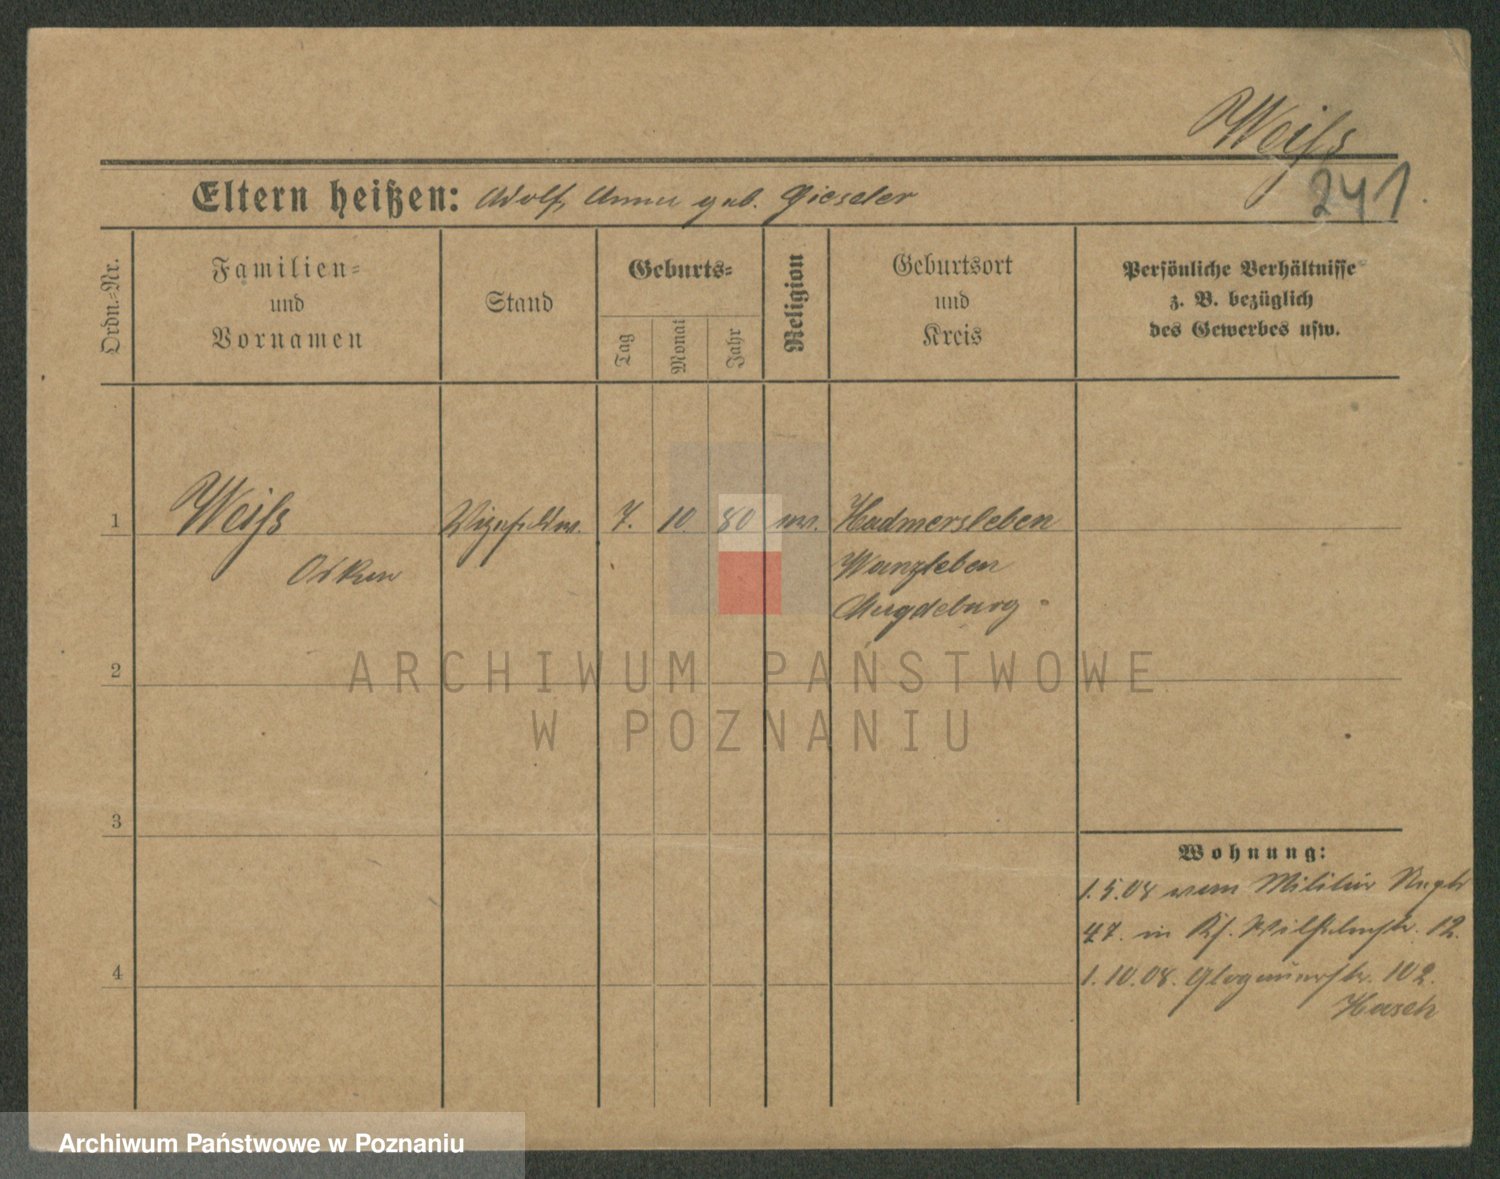 Weiſs
241
Eltern heißen: Adolf, Anna geb. Gieseler
Ordn.-Nr.
Familien-
und
Vornamen
Stand
Geburts-
Tag
Monat
Jahr
Religion
Geburtsort
und
Kreis
Persönliche Verhältnisse
z. B. bezüglich
des Gewerbes usw.
1 Weiſs Vizefeldw. 7. 10. 80 Hadmersleben
Oskar Wanzleben
Magdeburg
2
3
4
Wohnung:
1.5.08 vom Militär
47. in Wilhelmstr. 12.
1.10.08. Glogauerstr. 102.
Hasch
ARCHIWUM PAŃSTWOWE
W POZNANIU
Archiwum Państwowe w Poznaniu